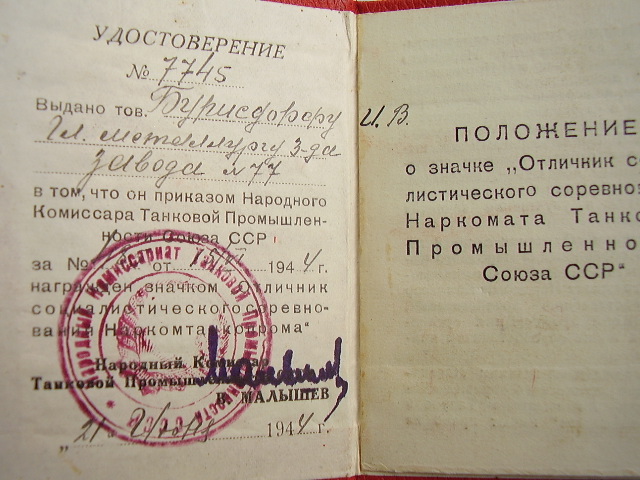 УДОСТОВЕРЕНИЕ
№ 7745
Выдано тов. Бурисдорфу И. В.
Гл. металлургу з-да
завода № 77
в том, что он приказом Народного
Комиссара Танковой Промышлен-
ности Союза ССР
за № от 194 4 г.
награжден значком „Отличник
социалистического соревно-
вания Наркомтанкопрома“
Народный Комиссар
Танковой Промышленности
В. МАЛЫШЕВ
„21 194 4 г.
Народный Комиссариат Танковой Промышленности СССР
ПОЛОЖЕНИЕ
о значке „Отличник со
листического соревно
Наркомата Танко
Промышленно
Союза ССР“